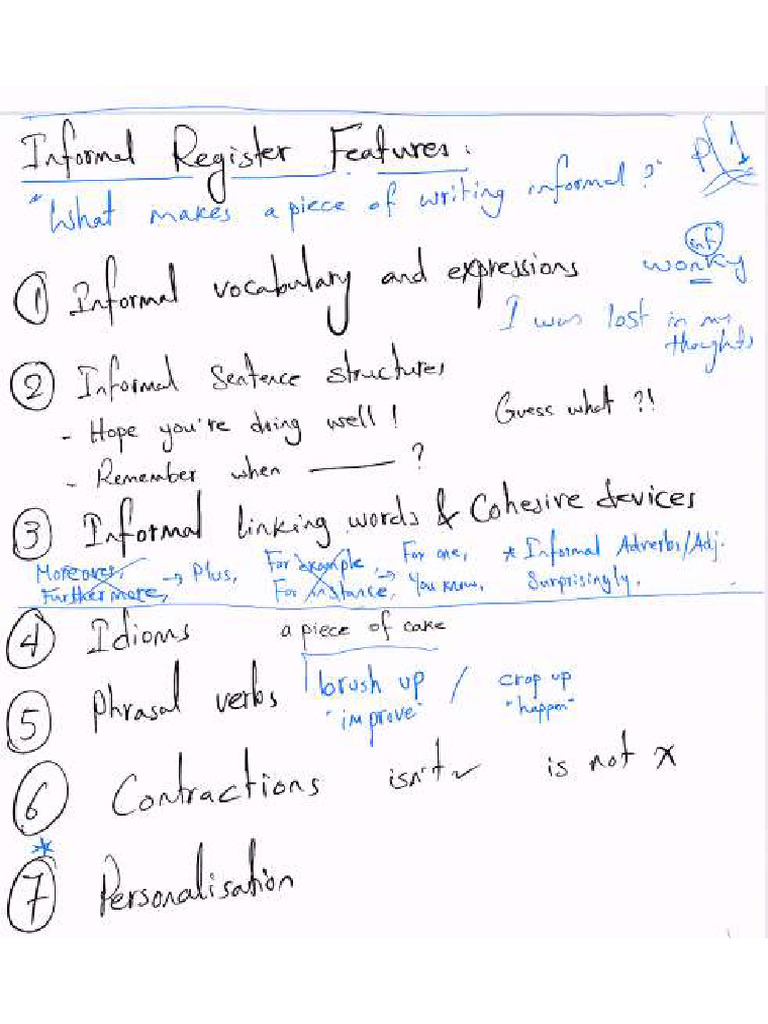 Informal Register Features:
P/1
"What makes a piece of writing informal?"
① Informal vocabulary and expressions
inf
wonky
I was lost in my
thoughts
② Informal sentence structures
- Hope you're doing well! Guess what?!
- Remember when ______?
③ Informal linking words & Cohesive devices
Moreover, → Plus, For example, → For one, * Informal Adverbs/Adj.
Furthermore, For instance, You know, Surprisingly.
④ Idioms a piece of cake
⑤ Phrasal verbs brush up / crop up
"improve" "happen"
⑥ Contractions isn't ✓ is not x
*
⑦ Personalisation